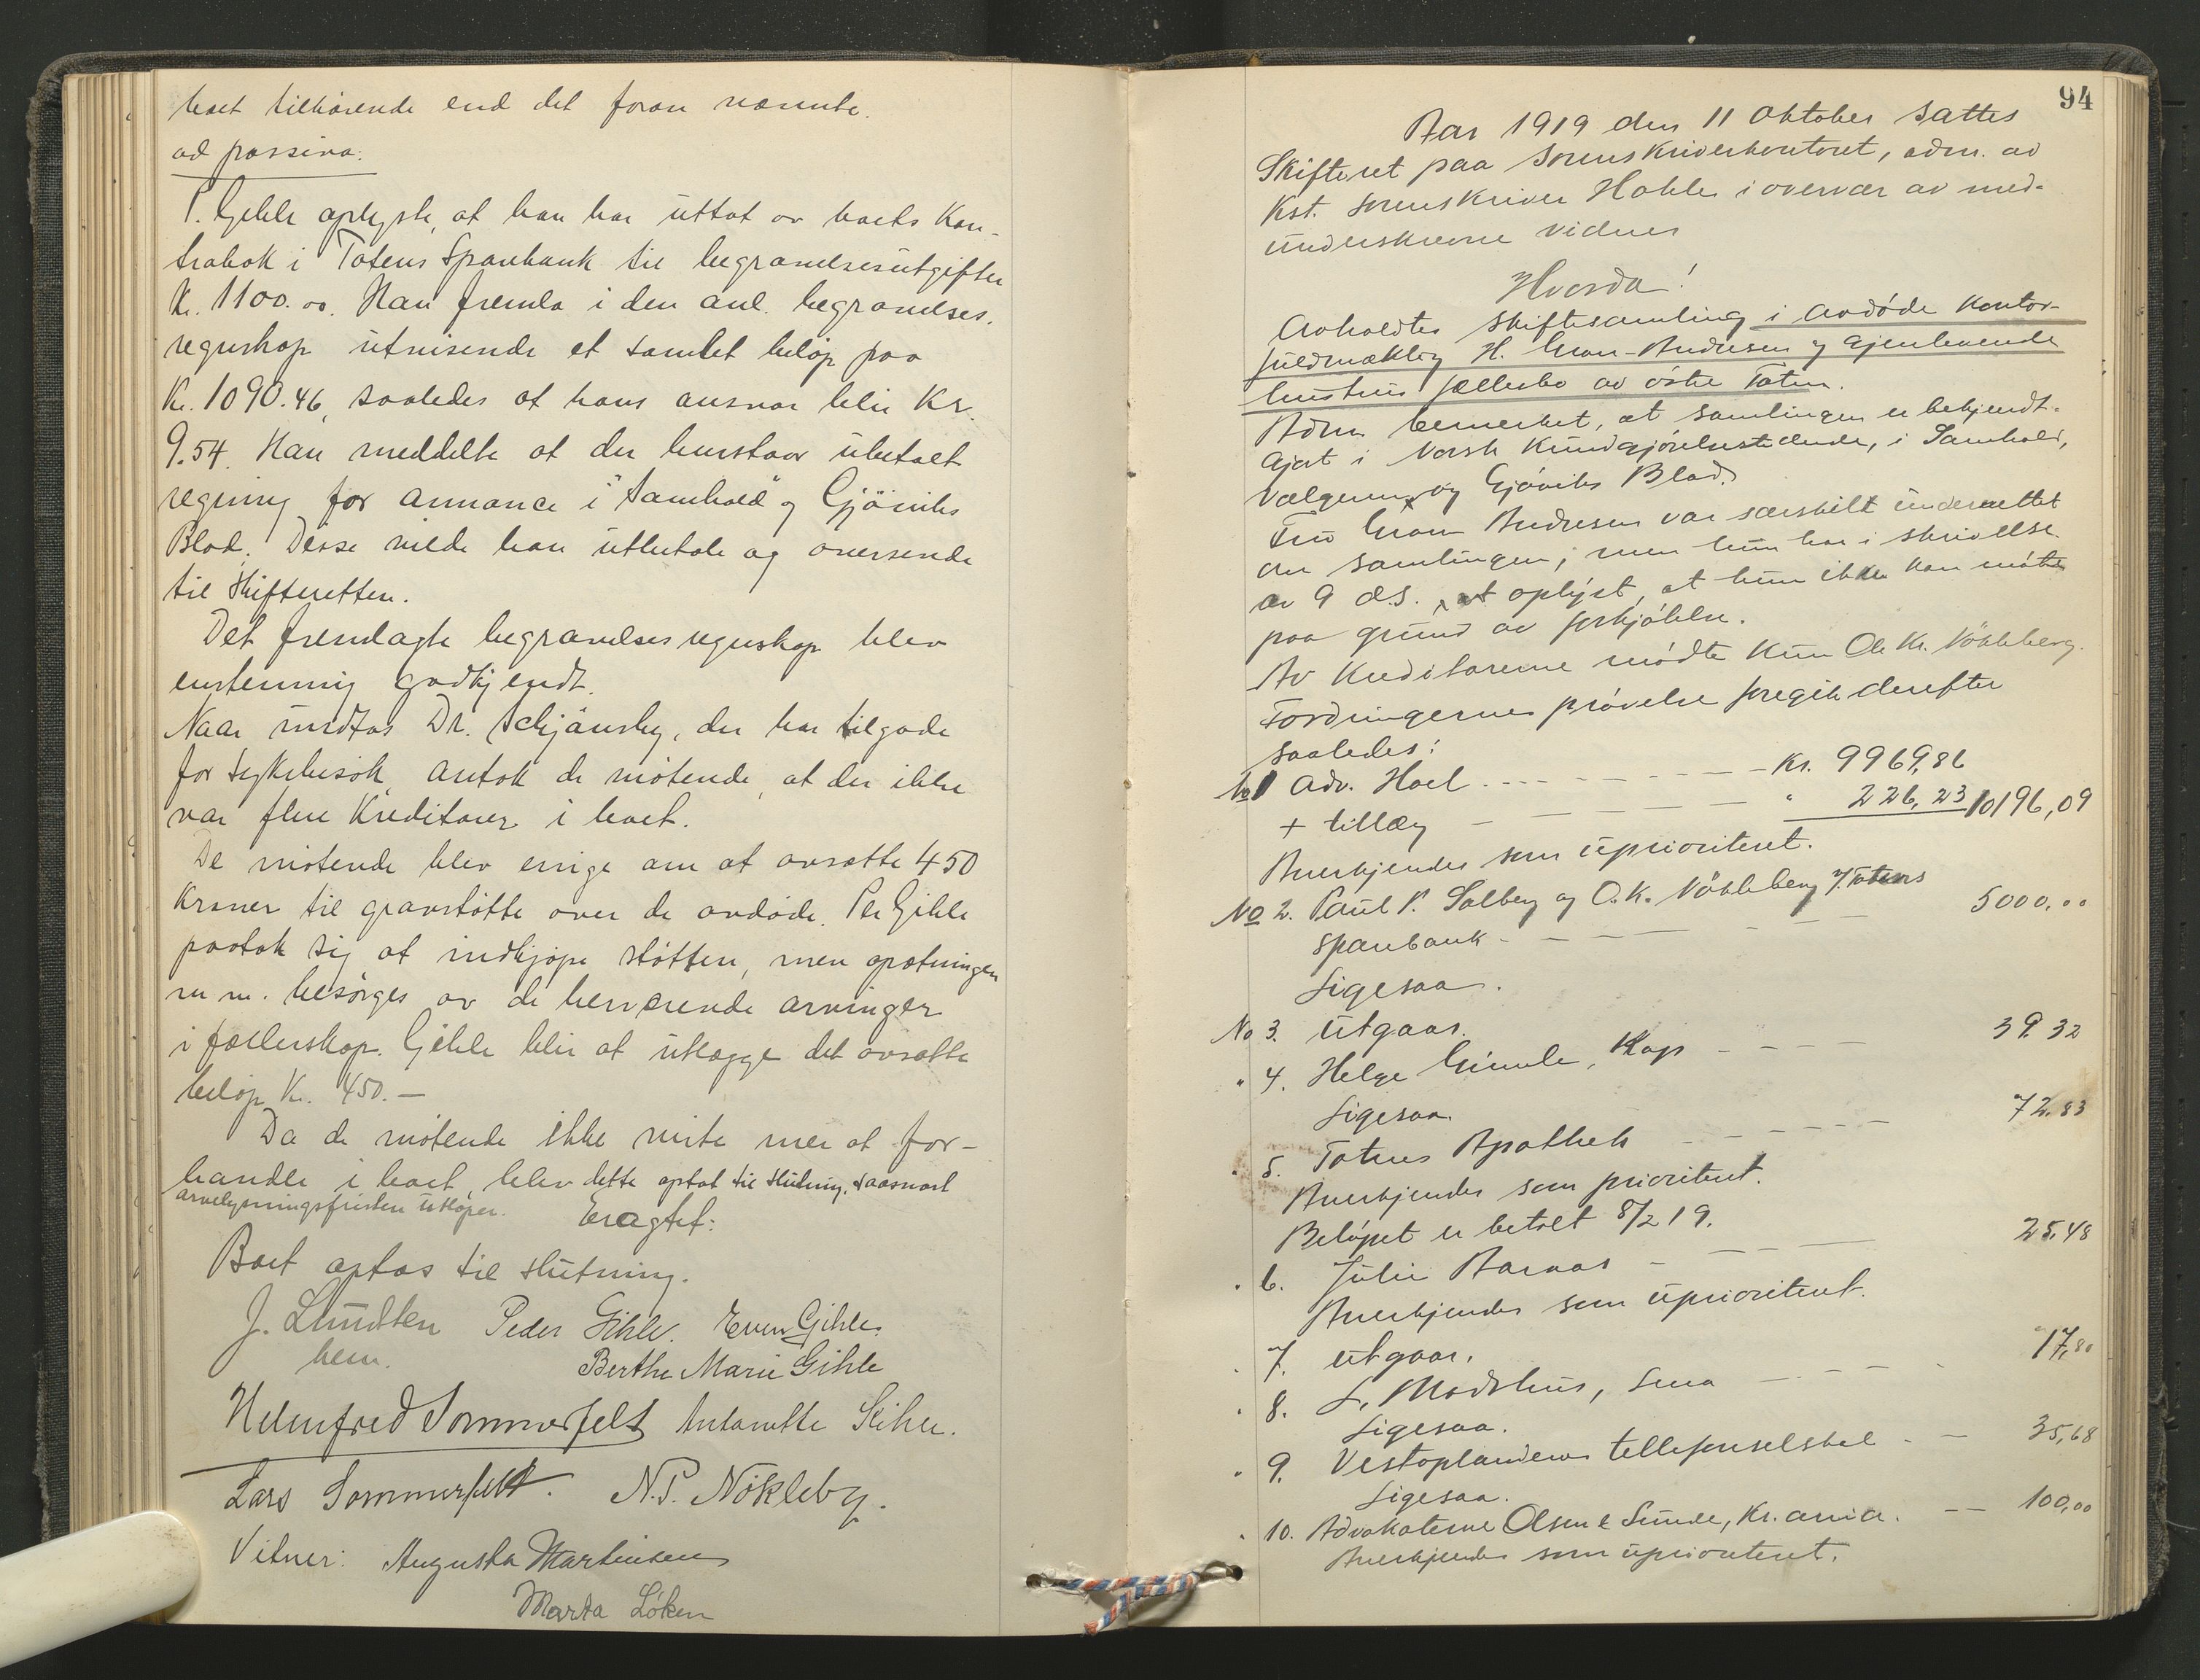 boet tilhørende end det foran nævnte.
ad passiva:
P. Gihle oplyste, at han har uttat av boets Kon-
trabok i Totens Sparebank til begravelsesutgifter
Kr. 1100.00. Han fremla i den anl. begravelses-
regnskap utvisende et samlet beløp paa
Kr. 1090.46, saaledes at hans ansvar blir Kr.
9.54. Han meddelte at der henstaar ubetalt
regning for annonce i "Samhold" og Gjøviks
Blad. Disse vilde han utbetale og oversende
til Skifteretten.
Det fremlagte begravelsesregnskap blev
enstemmig godkjendt.
Naar undtas Dr. Schjånsby, der har tilgode
for sykebesøk, antok de møtende, at der ikke
var flere Kreditorer i boet.
De møtende blev enige om at avsætte 450
Kroner til gravstøtte over de avdøde. Per Gihle
paatok sig at indkjøpe støtten, men opsætningen
m m. besørges av de herværende arvinger
i fællerskap. Gihle blir at utlægge det avsatte
beløp Kr. 450.—
Da de møtende ikke viste mer at for-
handle i boet, blev dette optat til slutning, saasnart
arvelysningsfristen utløper. Eragtet:
Boet optas til slutning.
J. Lundten Peder Gihle. Even Gihle.
bem. Berthe Marie Gihle
Helmfred Sommerfelt Antonette Gihle.
Lars Sommerfelt. N.P. Nøkleby.
Vitner: Augusta Martinsen
Marta Löken
94
Aar 1919 den 11 oktober sattes
Skifteret paa Sorenskriverkontoret, adm. av
Kst. sorenskriver Hohle i overvær av med-
underskrevne vidner
Hvorda!
Avholdtes skiftesamling i avdøde kontor-
fuldmægtig H. Gran-Andresen og gjenlevende
hustrus fællesbo av østre Toten.
Adm bemerket, at samlingen er bekjendt-
gjort i Norsk Kundgjørelsestidende, i Samhold,
Vælgeren, og Gjøviks Blad.
Fru Gran Andresen var særskilt underrettet
om samlingen; men hun har i skrivelse
av 9 ds. oplyst, at hun ikke kan møte
paa grund av forkjølelse.
Av Kreditorerne mødte kun Ole Kr. Nökleberg.
Fordringernes prøvelse foregik derefter
saaledes:
No 1 Adv. Hoel - - - - - Kr. 9969,86
+ tillæg — — — " 226,23 10196,09
Anerkjendes som uprioriteret.
No 2. Paul P. Solberg og O.K. Nökleberg f. Totens
Sparebank - - - - 5000,00
Ligesaa.
No 3. utgaar.
" 4. Helge Gimle, Kap - - - - 39.32
Ligesaa.
" 5. Totens Apothek - - - - 72.83
Anerkjendes som prioriteret.
Beløpet er betalt 8/2 19.
" 6. Julie Aarnas - - - 25,48
Anerkjendes som uprioriteret.
" 7. utgaar.
" 8. L. Modshus, Lena - - - 17,80
Ligesaa.
" 9. Vestoplandenes tellefonselskal - - 35,68
Ligesaa.
" 10. Advokaterne Olsen & Sunde, Kr.ania. - - 100,00
Anerkjendes som uprioriteret.